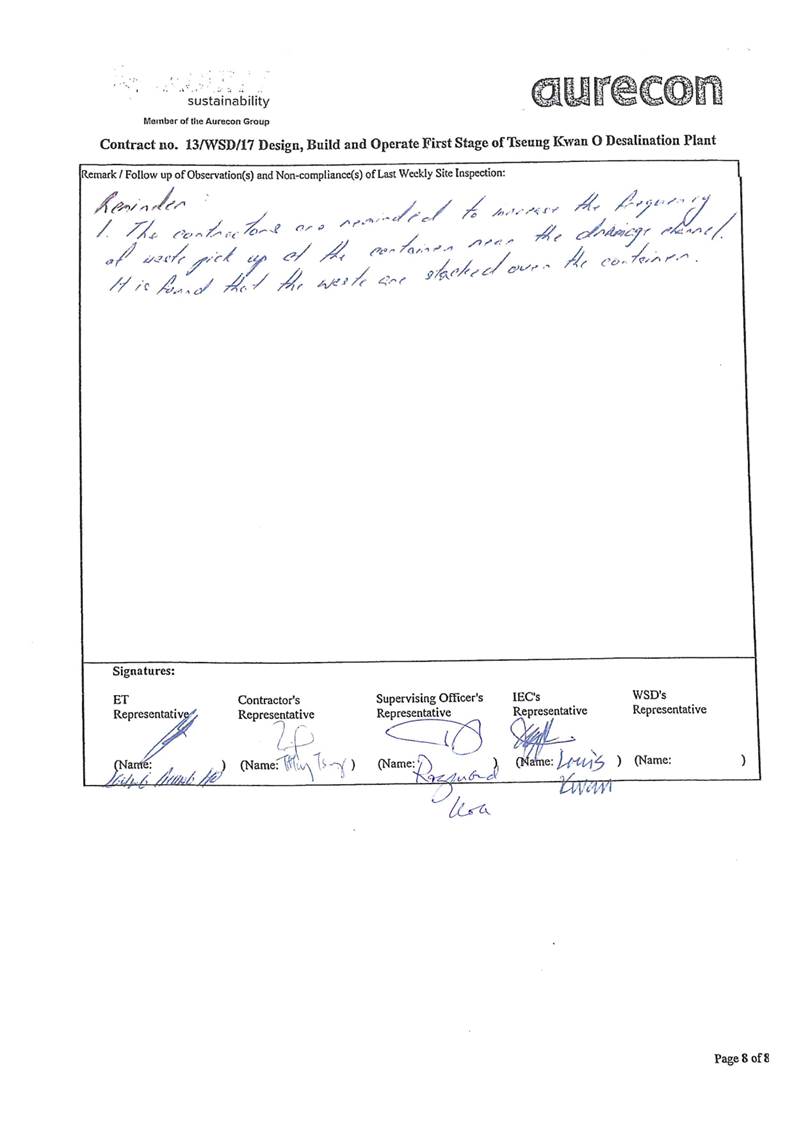 sustainability
Member of the Aurecon Group
aurecon
Contract no. 13/WSD/17 Design, Build and Operate First Stage of Tseung Kwan O Desalination Plant
Remark / Follow up of Observation(s) and Non-compliance(s) of Last Weekly Site Inspection:
Reminder :
1. The contractors are reminded to increase the frequency
of waste pick up at the container near the drainage channel.
It is found that the waste are stacked over the container.
Signatures:
ET Representative
Contractor's Representative
Supervising Officer's Representative
IEC's Representative
WSD's Representative
(Name: )
(Name: )
(Name: Raymond )
(Name: Louis Kwan )
(Name: )
Page 8 of 8